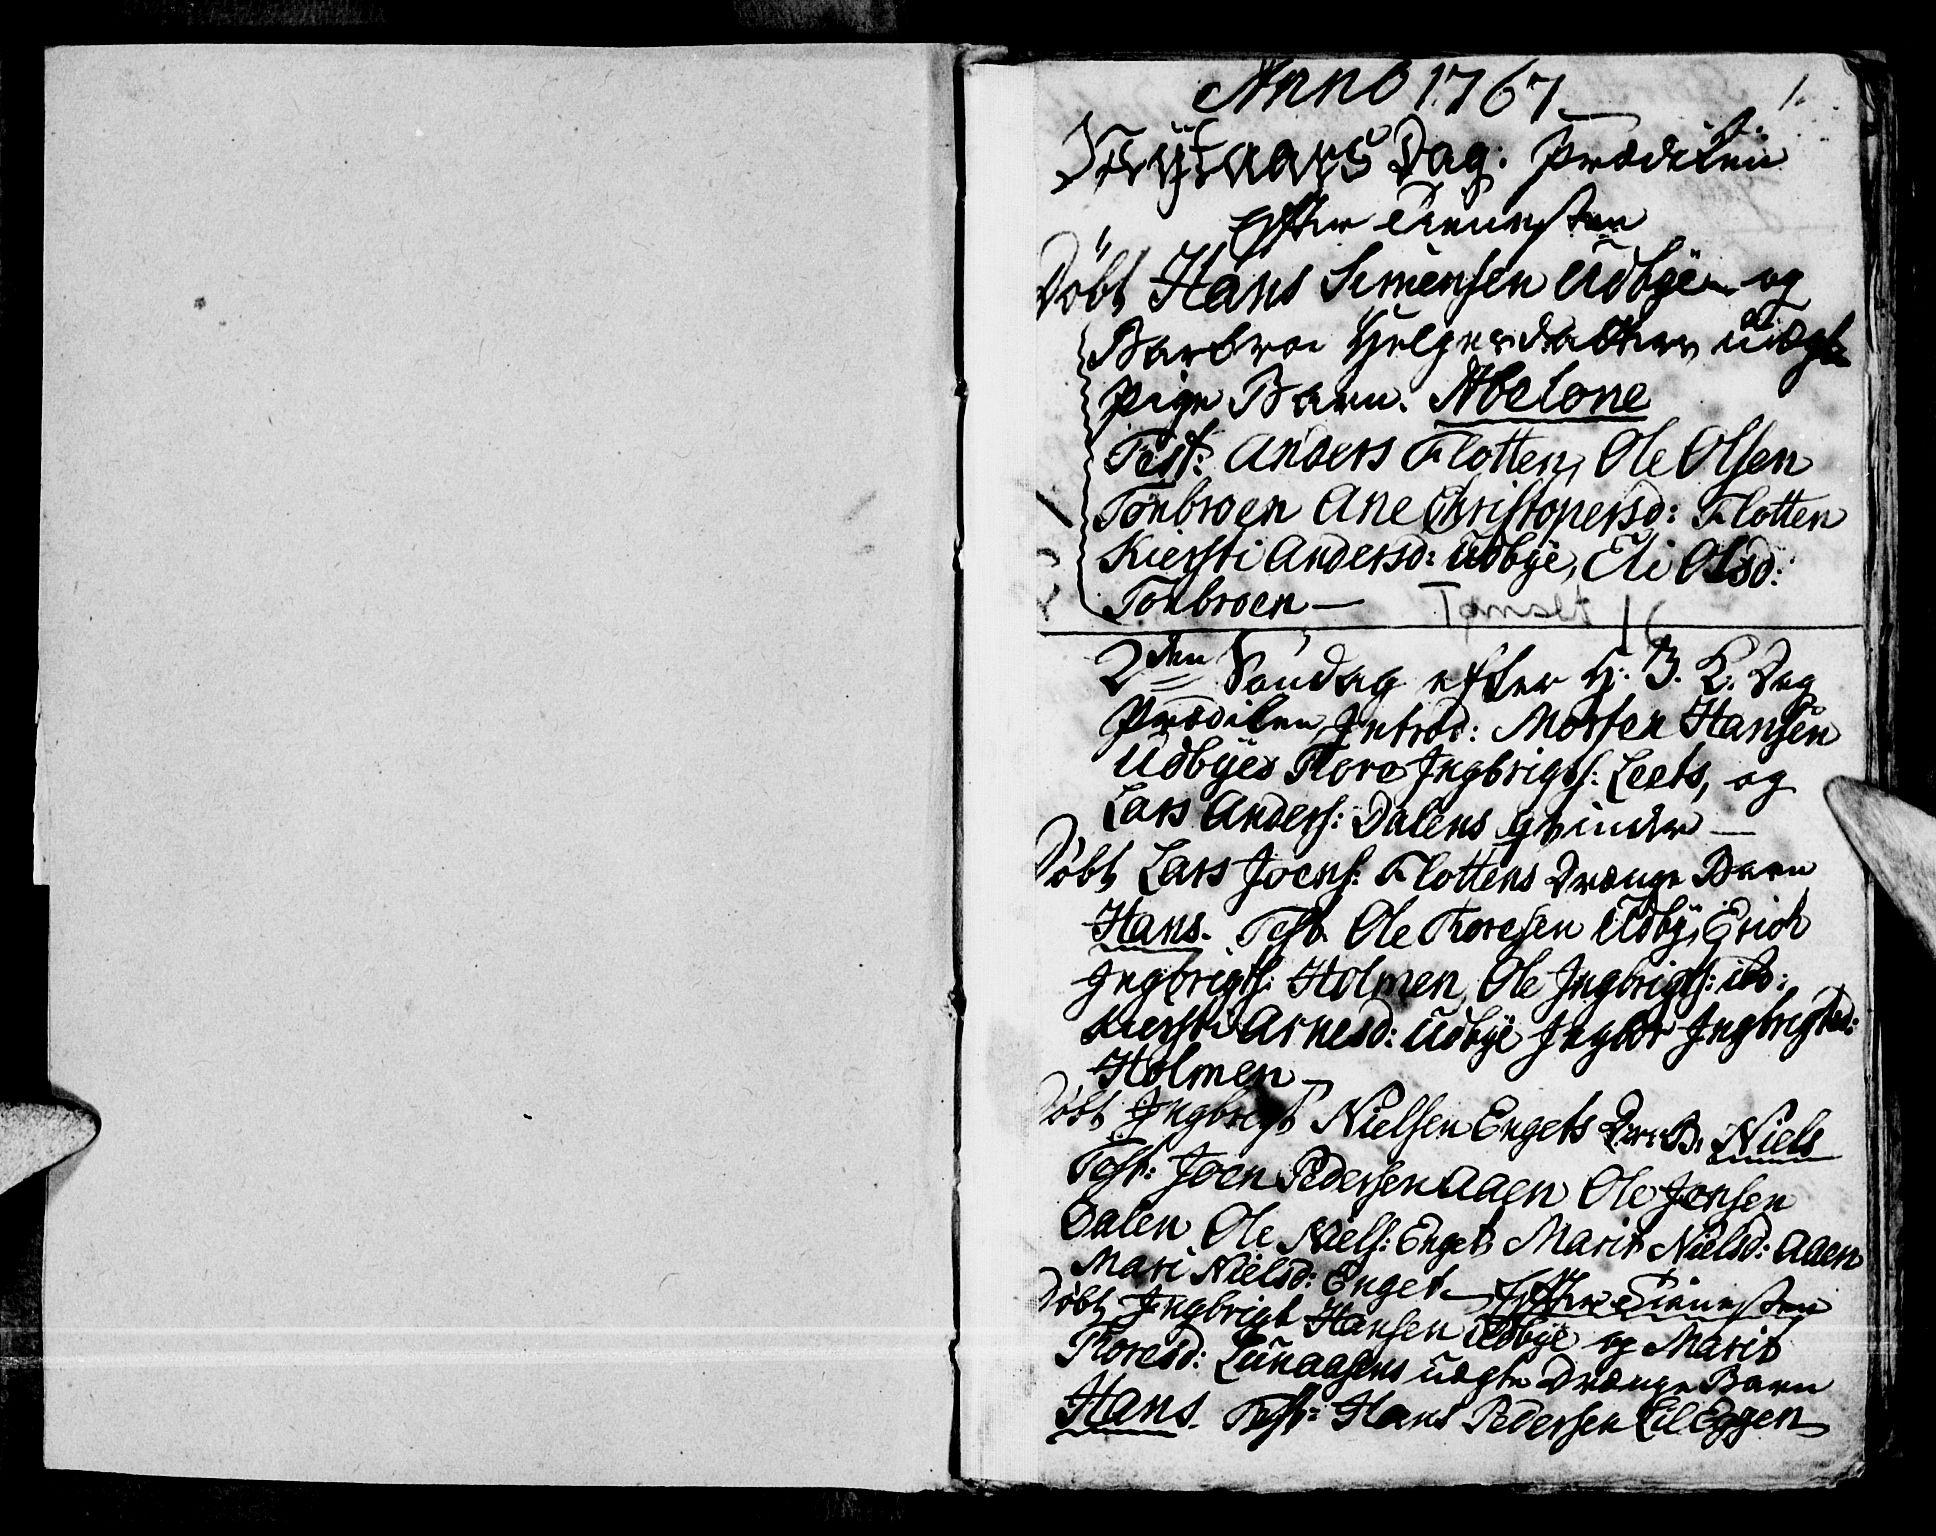 Anno 1767
1.
Nytaars Dag. Prædiken
Efter Tienesten
Döbt Hans Simensen Udbye og
Barbroe Helgesdatters uægte
Pige Barn. Abelone
Test: Anders Flotten, Ole Olsen
Tonbroen Ane Christopersd: Flotten
Kiersti Andersd: Udbye, Eli Olsd:
Tonbroen —
Tønset 16
2den Söndag efter H. 3. K. Dag
Prædiken Introd: Morten Hansen
Udbyes Tore Ingbrigts: Leets, og
Lars Anders: Dalens qvinder —
Döbt Lars Joens: Flottens Drænge Barn
Hans. Test. Ole Thoresen Udby, Erich
Ingbrigts: Holmen, Ole Ingbrigts: ib:
Kiersti Arnesd: Udbye Ingbor Ingbrigtsd:
Holmen —
Döbt Ingbrigt Nielsen Engets Dr: B: Niels
Test: Joen Pedersen Aaen Ole Jonsen
Dalen Ole Niels: Enget, Marit Nielsd: Aaen
Mari Nielsd: Enget — Efter Tienesten
Döbt Ingbrigt Hansen Udbye og Marit
Thoresd: Lunaasens uægte Drænge Barn
Hans. Test: Hans Pedersen Lil Eggen